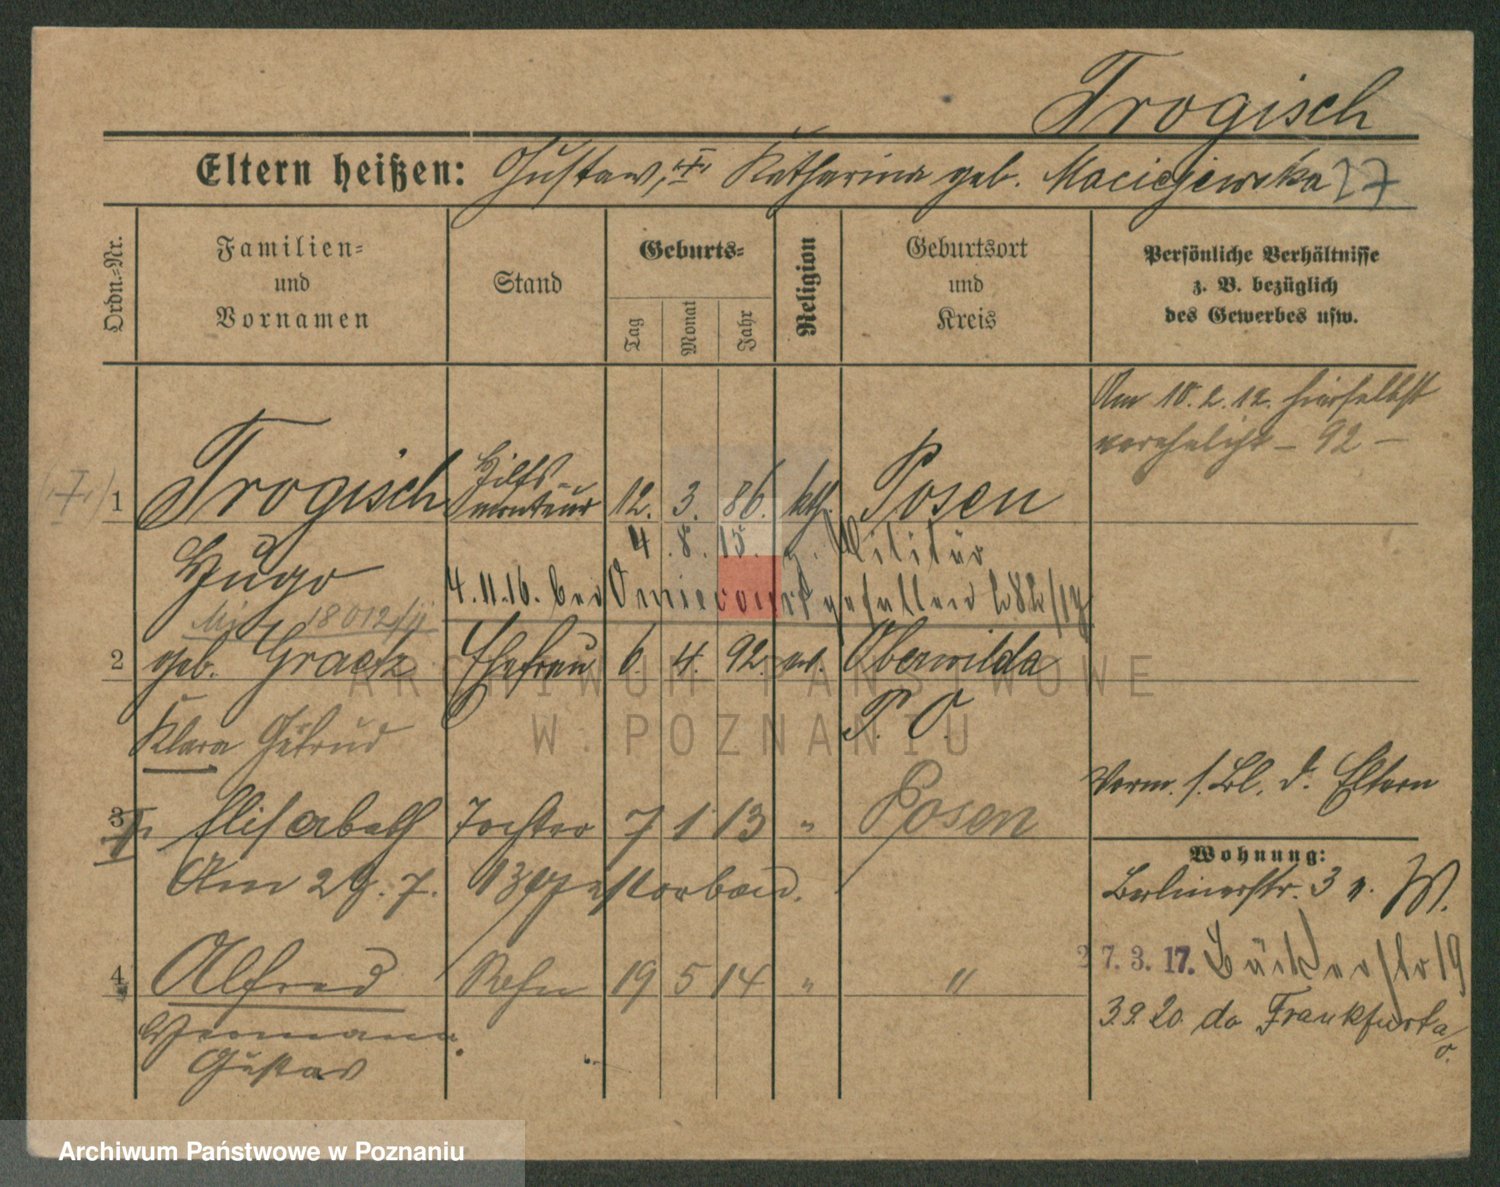 Trogisch
Eltern heißen: Gustav, Katharina geb. Maciejewska 27
Ordn.-Nr.
Familien- und Vornamen
Stand
Geburts-
Tag Monat Jahr
Religion
Geburtsort und Kreis
Persönliche Verhältnisse z. B. bezüglich des Gewerbes usw.
Am 10.2.12. hierselbst
verehelicht – 92 –
1 Trogisch Hilfs-monteur 12. 3. 86. kth. Posen
4.8.15. z. Militär
Hugo
4.11.16. bei gefallen
18012
2 geb. Graetz Ehefrau 6. 4. 92. ev. Oberwilda
P. O.
Klara Gertrud
Verm. s. Bl. d. Eltern
3 Elisabeth Tochter 7 1 13 " Posen
Wohnung:
Am 29. 7. 13 gestorben.
Berlinerstr. 3 W.
27.3.17. Bäckerstr 19
4 Alfred Sohn 19 5 14 " "
3.9.20 do Frankfurt a/O.
Hermann
Gustav
ARCHIWUM PAŃSTWOWE
W POZNANIU
Archiwum Państwowe w Poznaniu